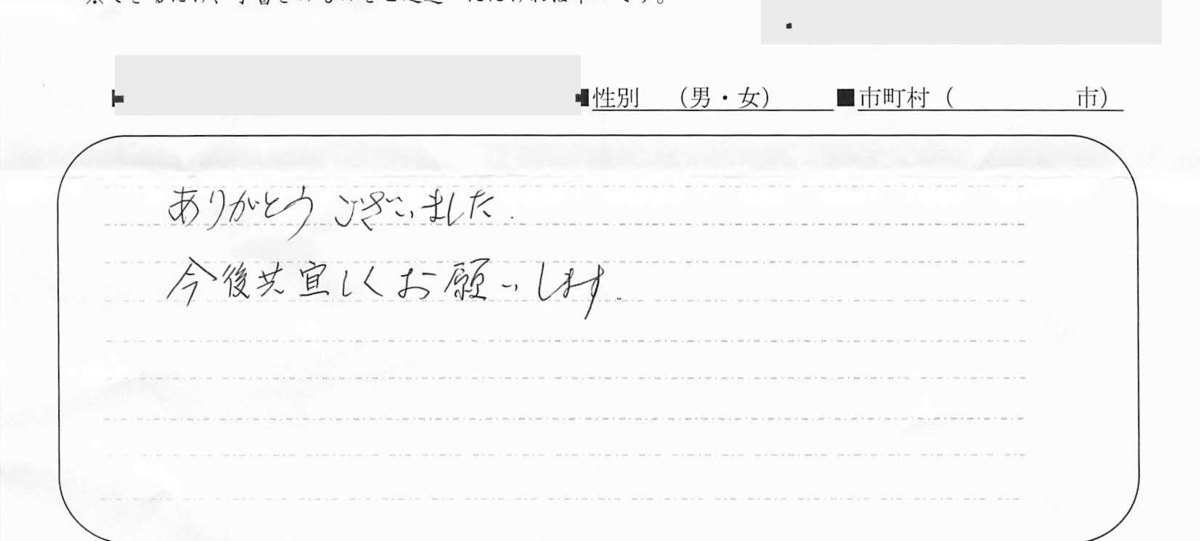 ■性別 （男・女） ■市町村（ 市）
ありがとうございました.
今後共宜しくお願いします.